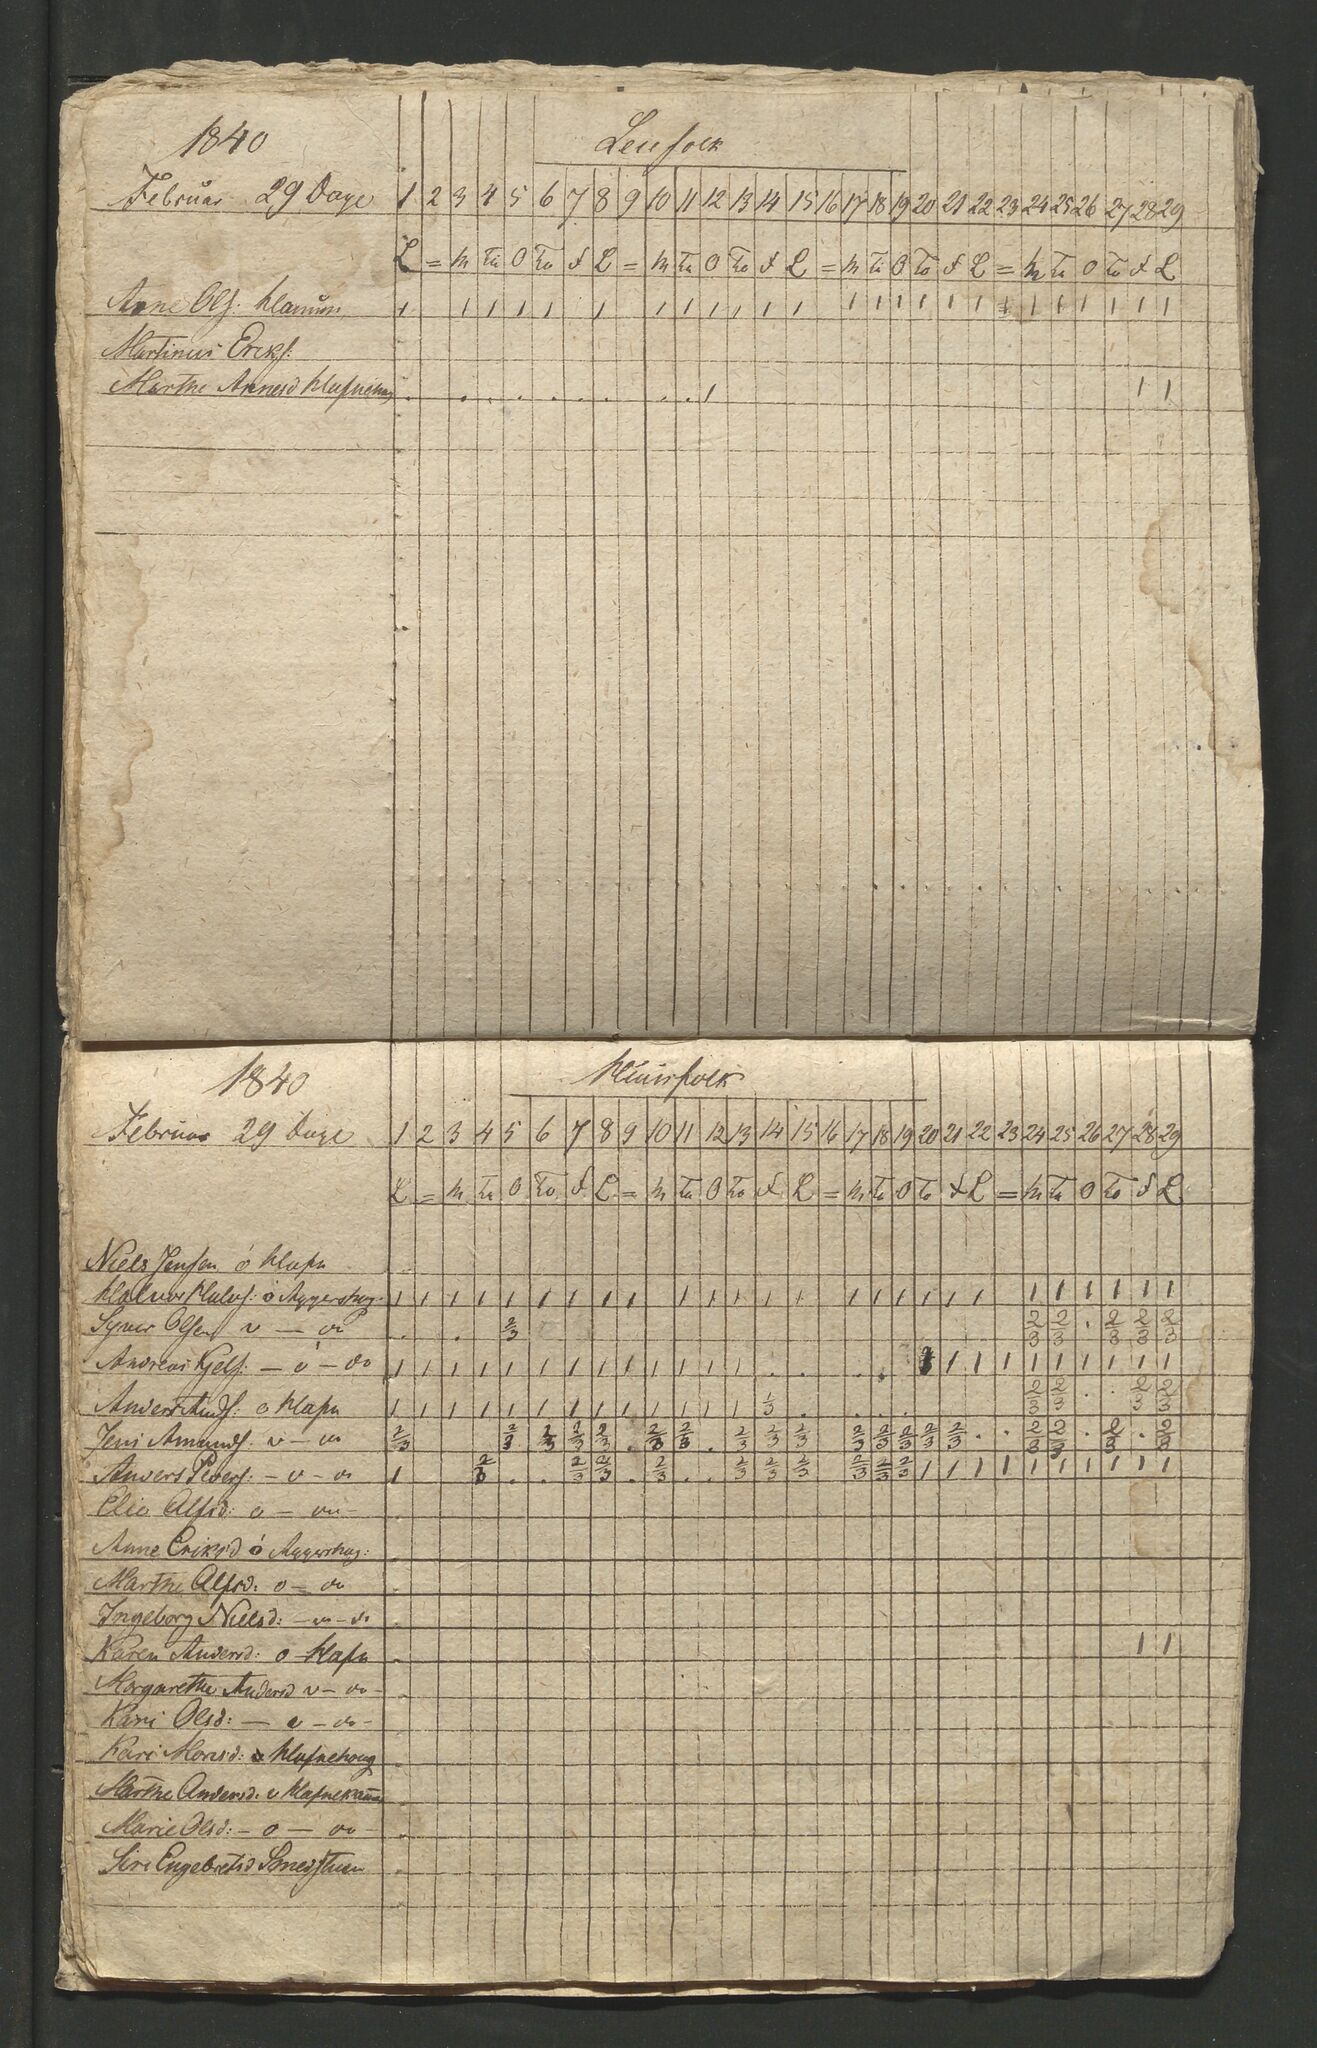 1840 Leufolk
Februar 29 Dage 1 2 3 4 5 6 7 8 9 10 11 12 13 14 15 16 17 18 19 20 21 22 23 24 25 26 27 28 29
L = M Tu O To F L = M Tu O To F L = M Tu O To F L = M Tu O To F L
Arne Ols: 1 1 1 1 1 1 1 1 1 1 1 1 1 1 1 1 1 1 1 1 1 1 1 1
Martinus Eriks:
Marthe Arnesd 1 1 1
1840 Huusfolk
Februar 29 Dage 1 2 3 4 5 6 7 8 9 10 11 12 13 14 15 16 17 18 19 20 21 22 23 24 25 26 27 28 29
L = M Tu O To F L = M Tu O To F L = M Tu O To F L = M Tu O To F L
Niels Jensen o Klafn
Halvor Halvs: o Aggershag 1 1 1 1 1 1 1 1 1 1 1 1 1 1 1 1 1 1 1 1 1 1 1 1 1 1
Syver Olsen v — do . . . 2/3 2/3 2/3 . 2/3 2/3 2/3
Andreas Kjels: — o — do 1 1 1 1 1 1 1 1 1 1 1 1 1 . . . . 1 1 1 1 1 1 1 1 1
Anders Ands: o Klafn 1 1 1 1 1 1 1 1 1 1 1 1 1 1/3 . . . . 2/3 2/3 . . 2/3 2/3
Jens Amunds: v — do 2/3 2/3 2/3 2/3 2/3 . 2/3 2/3 . 2/3 2/3 2/3 2/3 2/3 2/3 2/3 2/3 . . 2/3 2/3 . 2/3 . 2/3
Anders Peders: — v — do 1 2/3 . . 2/3 2/3 . 2/3 . . 2/3 2/3 2/3 2/3 2/3 2/3 1 1 1 1 1 1 1 1 1 1
Elie Alfsd: o — do —
Anne Eriksd o Aggershag:
Marthe Alfsd: o — do
Ingeborg Nielsd: — v — do
Karen Andersd: o Klafn 1 1
Margarethe Andersd v — do —
Kari Olsd: — v — do —
Kari Monsd: o Klafnehoug
Marthe Andersd: v
Marie Olsd: — o — do —
Siri Engebretsd Smedstuen